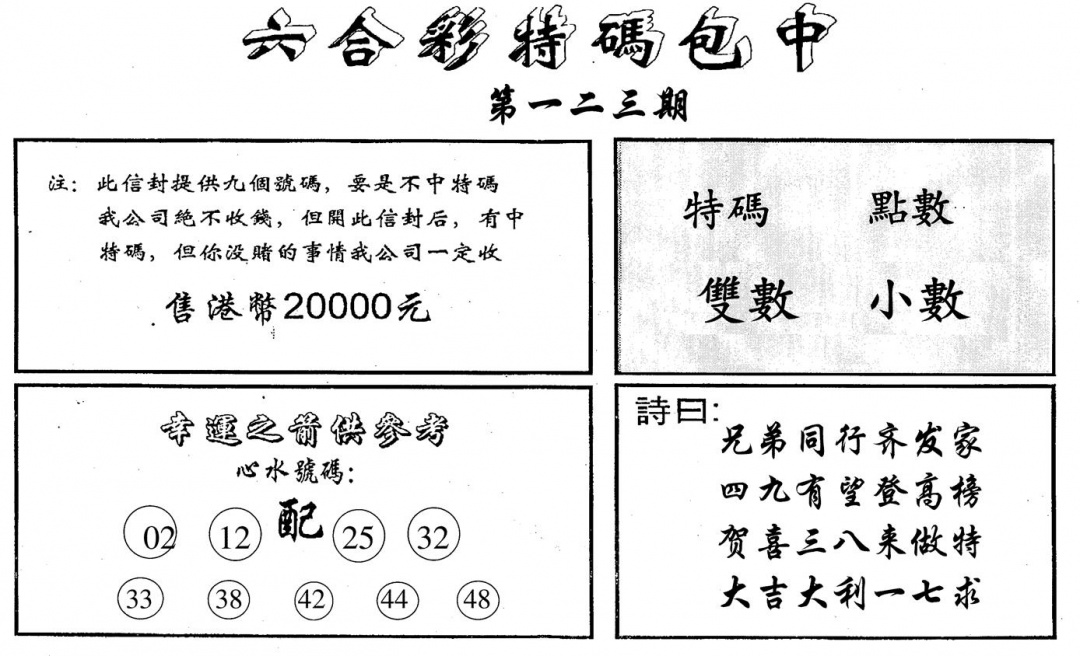 六合彩特碼包中
第一二三期
注：此信封提供九個號碼，要是不中特碼
我公司絕不收錢，但開此信封后，有中
特碼，但你没賭的事情我公司一定收
售港幣20000元
特碼 點數
雙數 小數
幸運之箭供參考
心水號碼：
配
02 12 25 32
33 38 42 44 48
詩曰：
兄弟同行齐发家
四九有望登高榜
贺喜三八来做特
大吉大利一七求